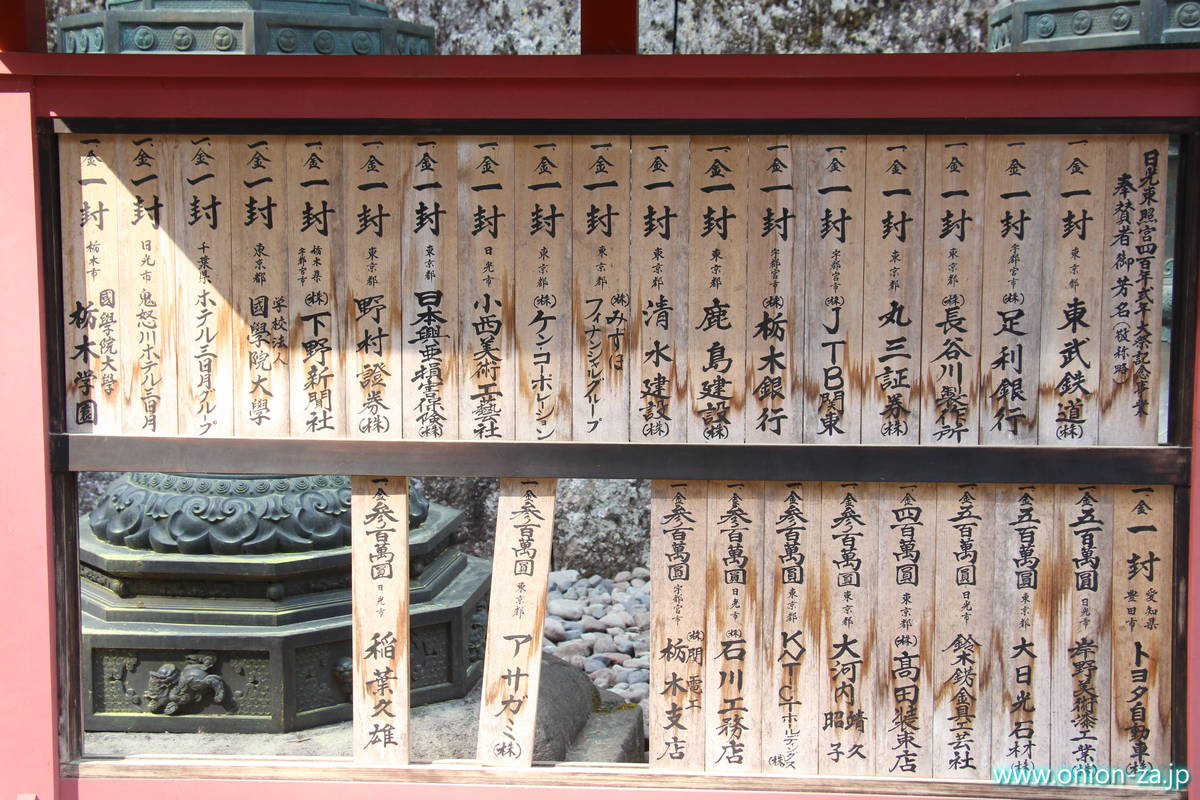 日光東照宮四百年式年大祭記念事業
奉賛者御芳名(敬称略)
一金 一封 東京都 東武鉄道(株)
一金 一封 宇都宮市 (株)足利銀行
一金 一封 東京都 (株)長谷川製作所
一金 一封 東京都 丸三証券(株)
一金 一封 宇都宮市 (株)JTB関東
一金 一封 宇都宮市 (株)栃木銀行
一金 一封 東京都 鹿島建設(株)
一金 一封 東京都 清水建設(株)
一金 一封 東京都 (株)みずほフィナンシャルグループ
一金 一封 東京都 (株)ケン・コーポレーション
一金 一封 日光市 小西美術工藝社
一金 一封 東京都 日本興亜損害保険(株)
一金 一封 東京都 野村證券(株)
一金 一封 栃木県宇都宮市 (株)下野新聞社
一金 一封 東京都 学校法人 國學院大學
一金 一封 千葉県 ホテル三日月グループ
一金 一封 日光市 鬼怒川ホテル三日月
一金 一封 栃木市 國學院大學 栃木学園
一金 一封 愛知県豊田市 トヨタ自動車(株)
一金 五百萬圓 日光市 岸野美術漆工業(株)
一金 五百萬圓 東京都 大日光石材(株)
一金 五百萬圓 日光市 鈴木錺金具工芸社
一金 四百萬圓 東京都 (株)髙田装束店
一金 参百萬圓 東京都 大河内 靖久 昭子
一金 参百萬圓 東京都 KYTCTホールディングス(株)
一金 参百萬圓 日光市 (株)石川工務店
一金 参百萬圓 宇都宮市 (株)関電工 栃木支店
一金 参百萬圓 東京都 アサガミ(株)
一金 参百萬圓 日光市 稲葉久雄
www.onion-za.jp